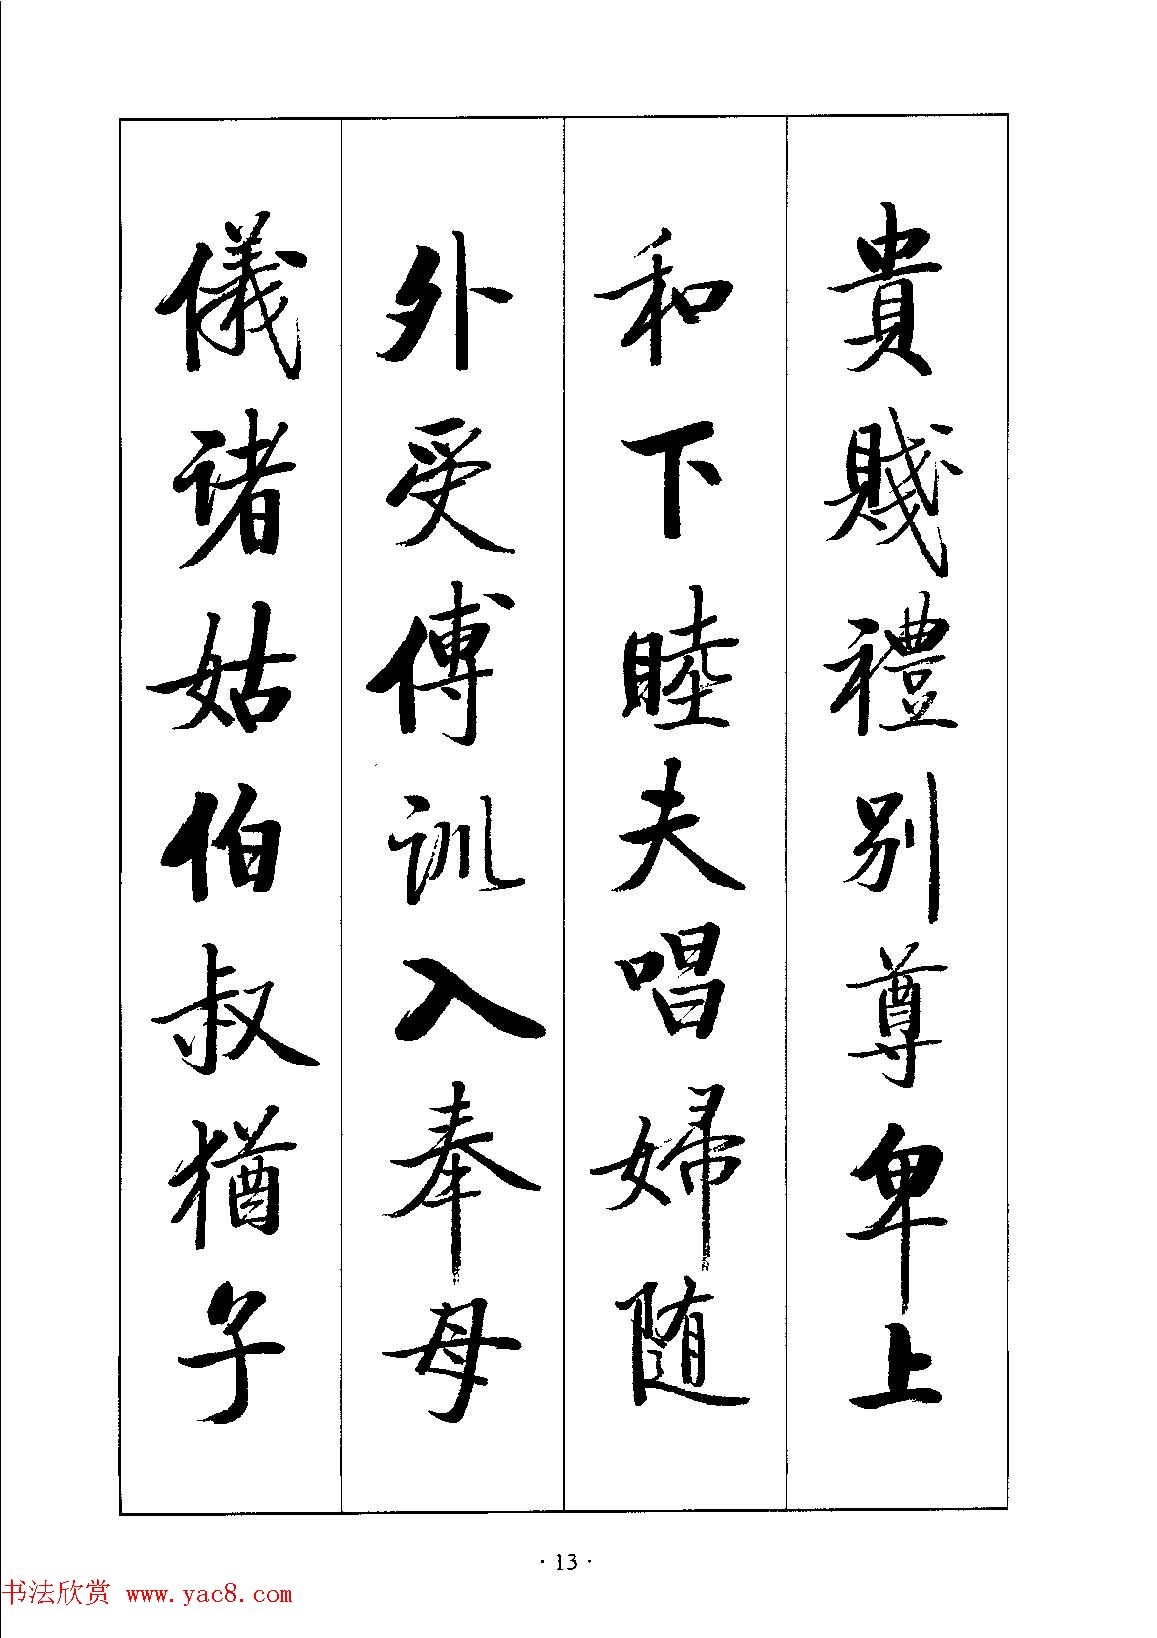 貴賤禮別尊卑上
和下睦夫唱婦随
外受傅訓入奉母
儀诸姑伯叔猶子
·13·
书法欣赏 www.yac8.com